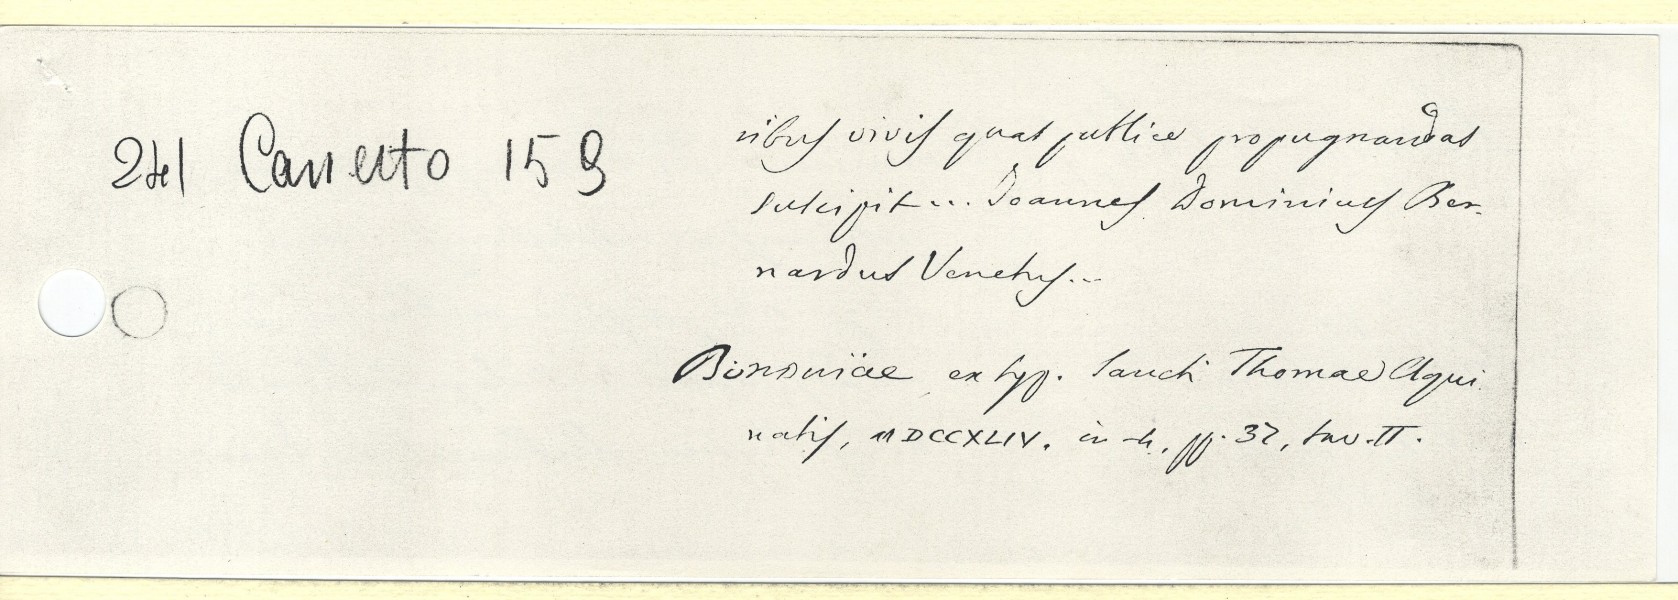 2 del Canneto 159
ribus vivis quas publice propugnandas
suscipit... Joannes Dominicus Ber-
nardus Venetus...
Bononiae ex typ. Sancti Thomae Aqui
natis, MDCCXLIV. in-4, pp. 37, tav. II.